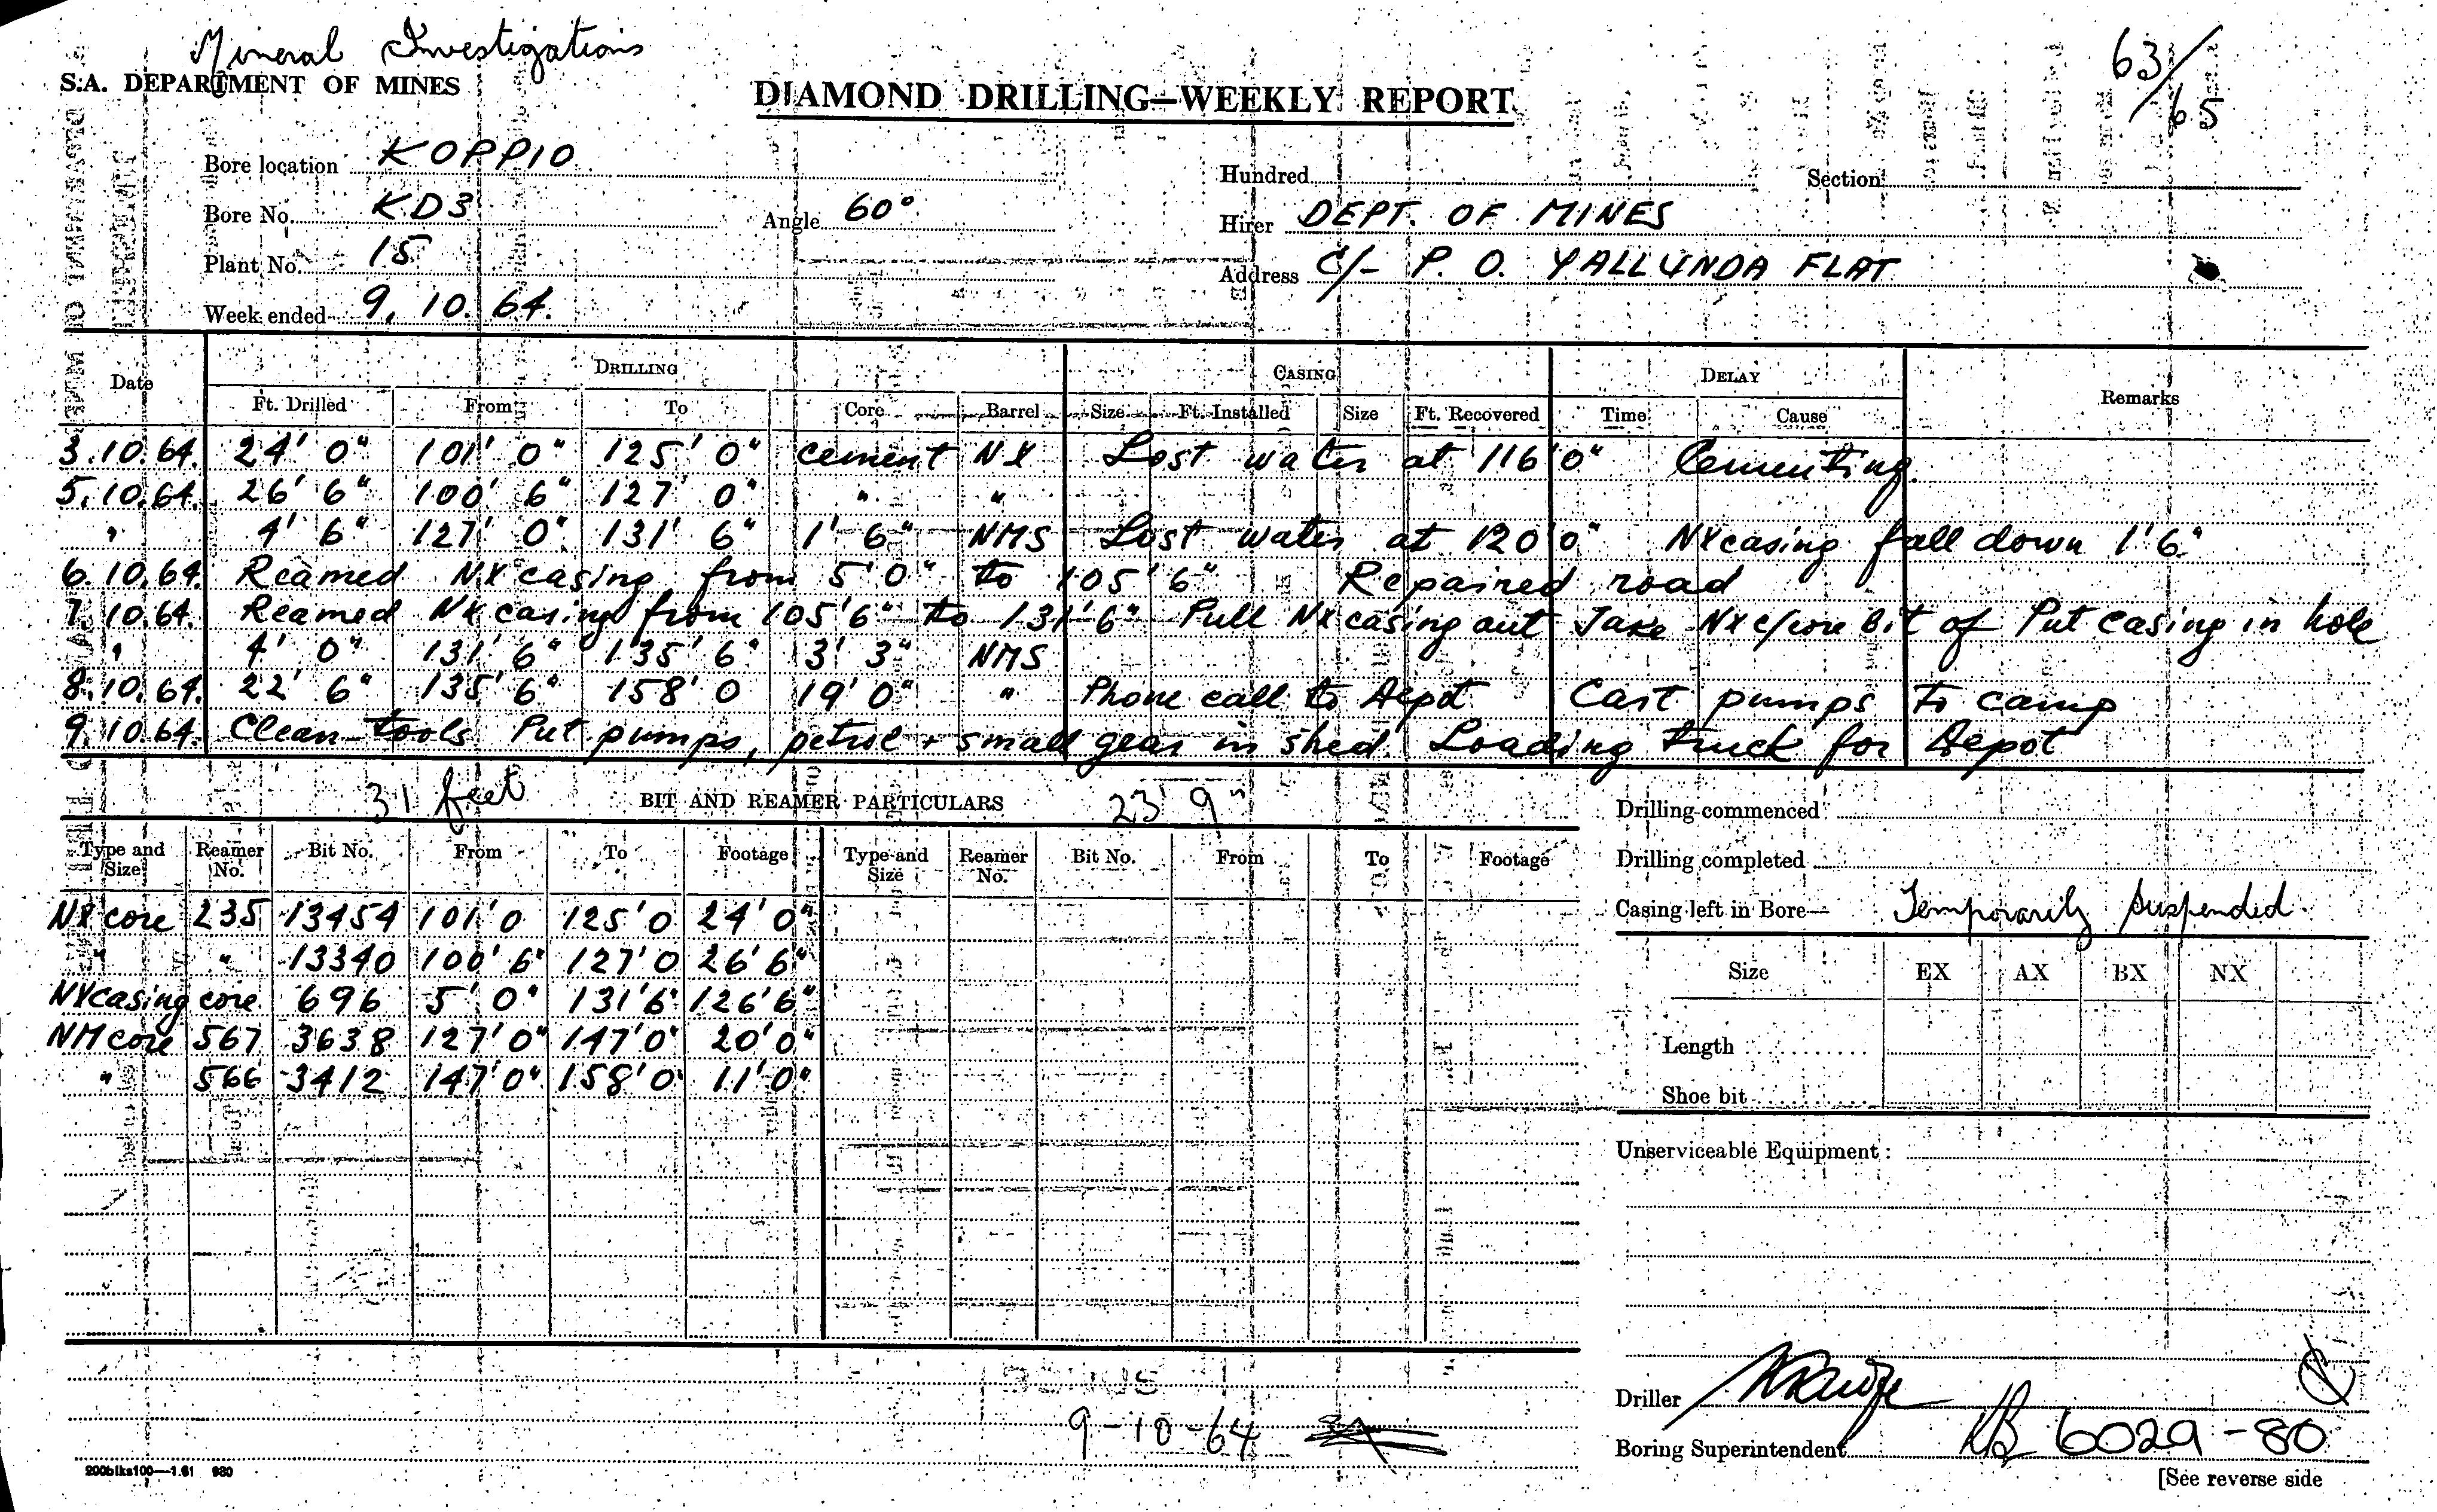 Mineral Investigations
63/65
S.A. DEPARTMENT OF MINES
DIAMOND DRILLING—WEEKLY REPORT
Bore location KOPPIO
Hundred Section
Bore No. KD3 Angle 60°
Hirer DEPT. OF MINES
Plant No. 15
Address C/- P. O. YALLUNDA FLAT
Week ended 9. 10. 64.
Date DRILLING CASING DELAY Remarks
Ft. Drilled From To Core Barrel Size Ft. Installed Size Ft. Recovered Time Cause
3.10.64. 24' 0" 101' 0" 125' 0" cement NX Lost water at 116'0" Cementing
5.10.64. 26' 6" 100' 6" 127' 0" " "
" 4' 6" 127' 0" 131' 6" 1' 6" NMS Lost water at 120'0" NX casing fall down 1'6"
6.10.64. Reamed NX casing from 5'0" to 105'6" Repaired road
7.10.64. Reamed NX casing from 105'6" to 131'6" Pull NX casing out Take NX c/core Bit of Put casing in hole
" 4' 0" 131' 6" 135' 6" 3' 3" NMS
8.10.64. 22' 6" 135' 6" 158' 0 19' 0" " Phone call to Depot Cart pumps to camp
9.10.64. Clean tools Put pumps, petrol + small gear in shed Loading truck for Depot
31 feet BIT AND REAMER PARTICULARS 23' 9"
Drilling commenced
Type and Size Reamer No. Bit No. From To Footage Type and Size Reamer No. Bit No. From To Footage
Drilling completed
NX core 235 13454 101'0 125'0 24'0"
Casing left in Bore— Temporarily suspended
" " 13340 100'6" 127'0 26'6"
NX casing core 696 5'0" 131'6" 126'6"
NM core 567 3638 127'0" 147'0" 20'0"
" 566 3412 147'0" 158'0" 11'0"
Size EX AX BX NX
Length
Shoe bit
Unserviceable Equipment :
Driller
9-10-64
Boring Superintendent 6029-80
200blks100—1.61 980
[See reverse side